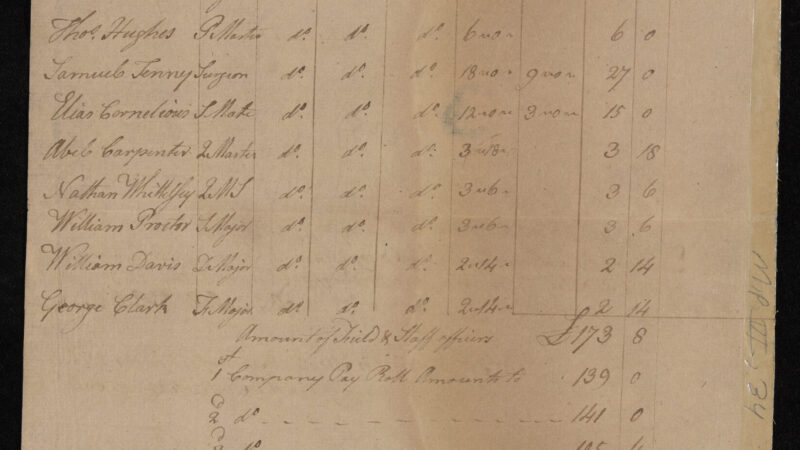 Thoˢ. Hughes P.Master dº. dº. dº. 6 „ 0 „ 6 0
Samuel Tenny Surgeon dº. dº. dº. 18 „ 0 „ 9 „ 0 „ 27 0
Elias Cornelious S.Mate dº. dº. dº. 12 „ 0 „ 3 „ 0 „ 15 0
Abil Carpenter Q.Master dº. dº. dº. 3 „ 18 „ 3 18
Nathan Whittlsy Q.M.S dº. dº. dº. 3 „ 6 „ 3 6
William Proctor S.Major dº. dº. dº. 3 „ 6 „ 3 6
William Davis D.Major dº. dº. dº. 2 „ 14 „ 2 14
George Clark F.Major dº. dº. dº. 2 „ 14 „ 2 14
Amount of Field & Staff officers £173 8
1st Company Pay Roll Amounts to 139 0
2d dº 141 0
dº
34